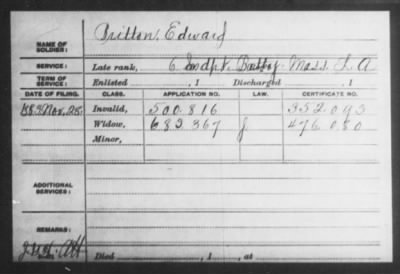 NAME OF SOLDIER: Britton, Edward
SERVICE: Late rank, 6 Indpt. Batt'y Mass. L. A.
TERM OF SERVICE: Enlisted , 1 Discharged , 1
DATE OF FILING. CLASS. APPLICATION NO. LAW. CERTIFICATE NO.
1883 Nov. 28 Invalid, 500.816 352.093
Widow, 683.367 J. 476.080
Minor,
ADDITIONAL SERVICES:
REMARKS:
Died , 1 , at